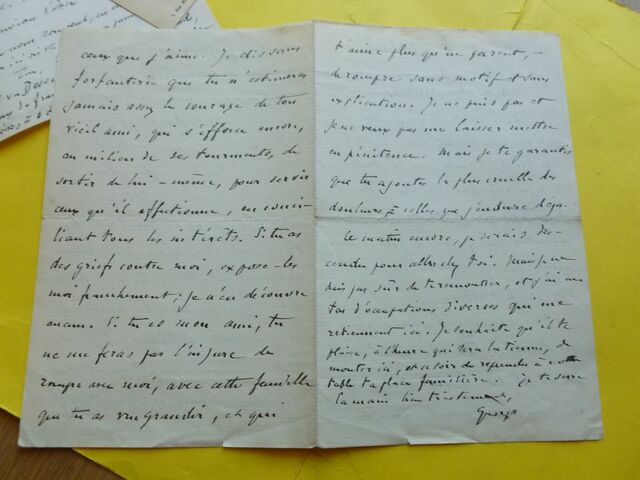 ceux que j'aime. Je dis sans
forfanterie que tu n'estimeras
jamais assez le courage de ton
vieil ami, qui s'efforce encore,
au milieu de ses tourments, de
sortir de lui-même, pour servir
ceux qu'il affectionne, en conci-
liant tous les intérêts. Si tu as
des griefs contre moi, expose-les
moi franchement; je n'en découvre
aucun. Si tu es mon ami, tu
ne me feras pas l'injure de
rompre avec moi, avec cette famille
que tu as vu grandir, et qui
t'aime plus qu'un parent, -
de rompre sans motif et sans
explication. Je ne puis pas et
je ne veux pas me laisser mettre
en pénitence. Mais je te garantis
que tu ajoutes la plus cruelle des
douleurs à celles que j'endure déjà.
Ce matin encore, je serais des-
cendu pour aller chez toi. Mais je ne
suis pas sûr de remonter, et j'ai un
tas d'occupations diverses qui me
retiennent ici. Je souhaite qu'il te
plaise, à l'heure qui sera la tienne, de
monter ici, et ce soir de reprendre à notre
table ta place familière. Je te serre
la main bien tristement,
Georges